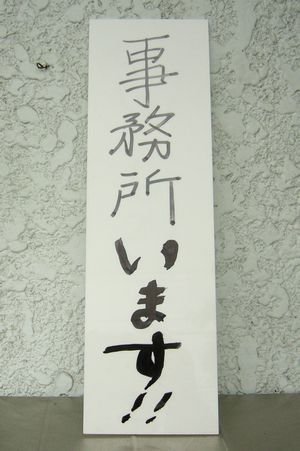 事務所います!!